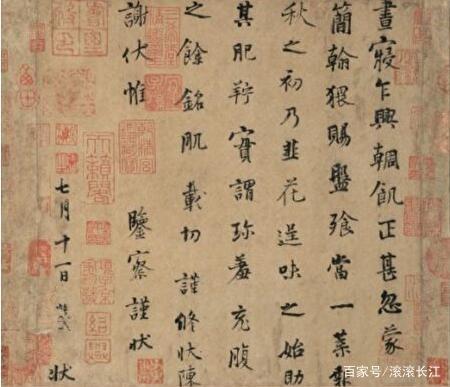 晝寢乍興輖飢正甚忽蒙
簡翰猥賜盤飧當一葉報
秋之初乃韭花逞味之始助
其肥羜實謂珍羞充腹
之餘銘肌載切謹修狀陳
謝伏惟
鑒察謹狀
七月十一日狀
天籟閣
百家号/滚滚长江